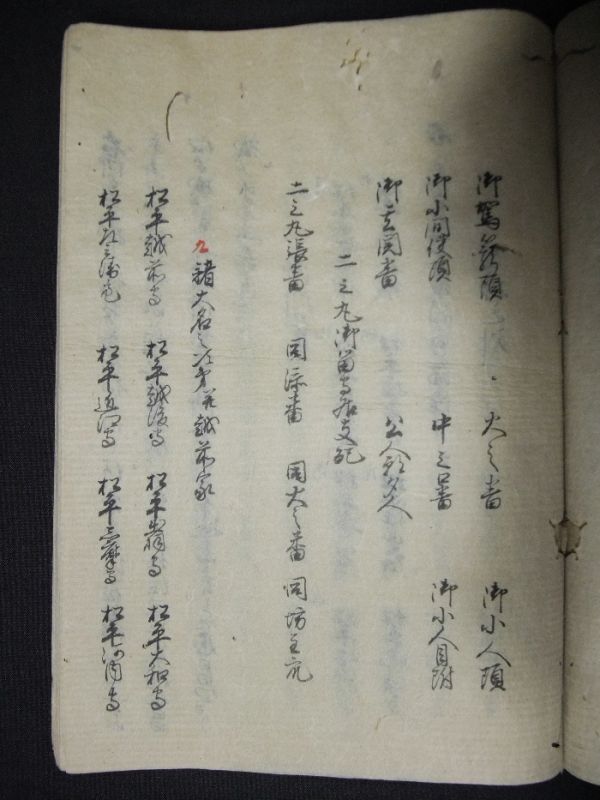 御駕籠頭 大之番 御小人頭
御小間使頭 中之口番 御小人目附
御玄関番 公人朝夕人
二之丸御留守居支配
二之丸張番 同添番 同大之番 同坊主
九 諸大名之次第并越前家
松平越前守 松平越後守 松平 守 松平大和守
松平 松平近江守 松平 守 松平河内守